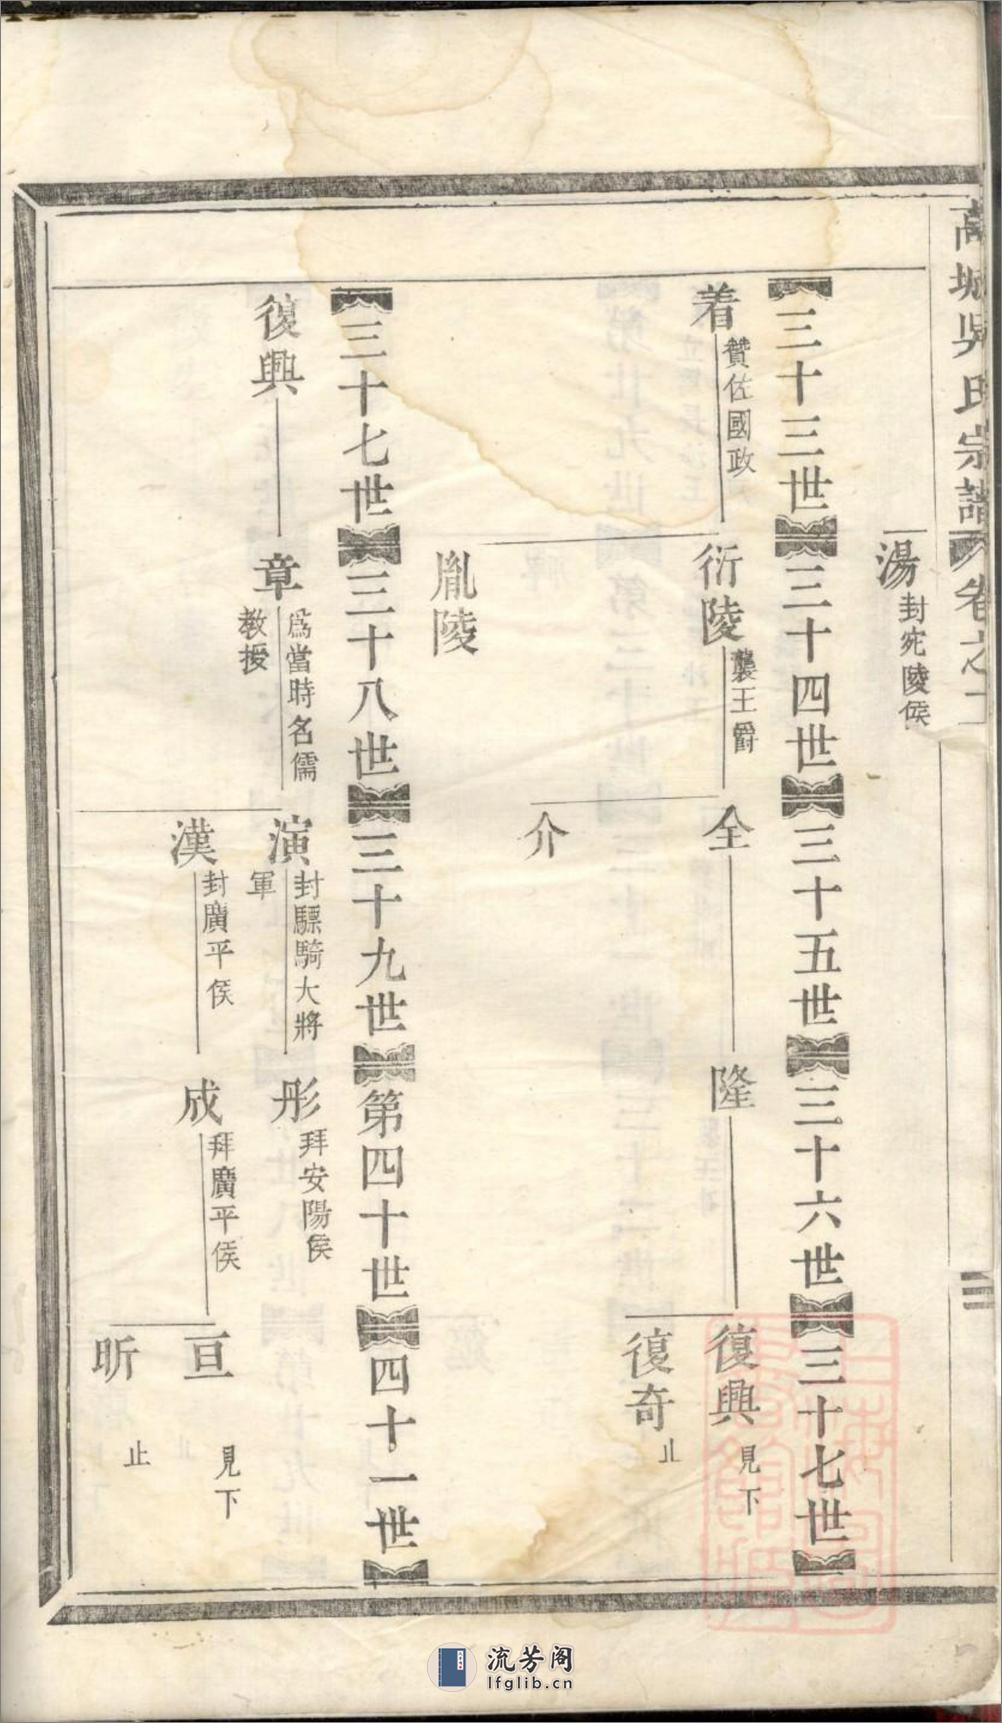 高城吳氏宗譜 卷之一
湯 封宛陵侯
三十三世 三十四世 三十五世 三十六世 三十七世
着 贊佐國政
衍陵 襲王爵
全
隆
復興 見下
復奇 止
介
胤陵
三十七世 三十八世 三十九世 第四十世 四十一世
復興
章 爲當時名儒
教授
演 封驃騎大將
軍
彤 拜安陽侯
漢 封廣平侯
成 拜廣平侯
亘 見下
昕 止
流芳阁
lfglib.cn